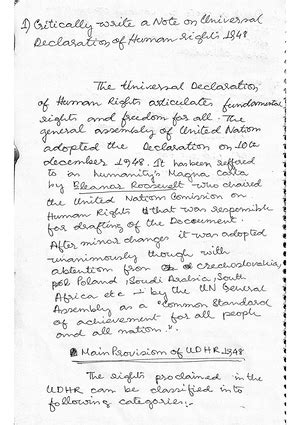 1) Critically write a Note on Universal
Declaration of Human rights 1948
The Universal Declaration
of Human Rights articulates fundamental
rights and freedom for all. The
general assembly of United Nation
adopted the Declaration on 10th
december 1948. It has been reffered
to as humanity's Magna Carta
by Eleanor Roosevelt who chaired
the United Nation Comission on
Human Rights that was responsible
for drafting of the Document.
After minor changes it was adopted
unanimously though with
abtention from Czechoslovakia,
Poland, Saudi Arabia, South
Africa etc by the UN General
Assembly as a "Common Standard
of achievement for all people
and all nation.".
Main Provision of UDHR, 1948
The rights proclaimed in the
UDHR can be classified into
following categories:-